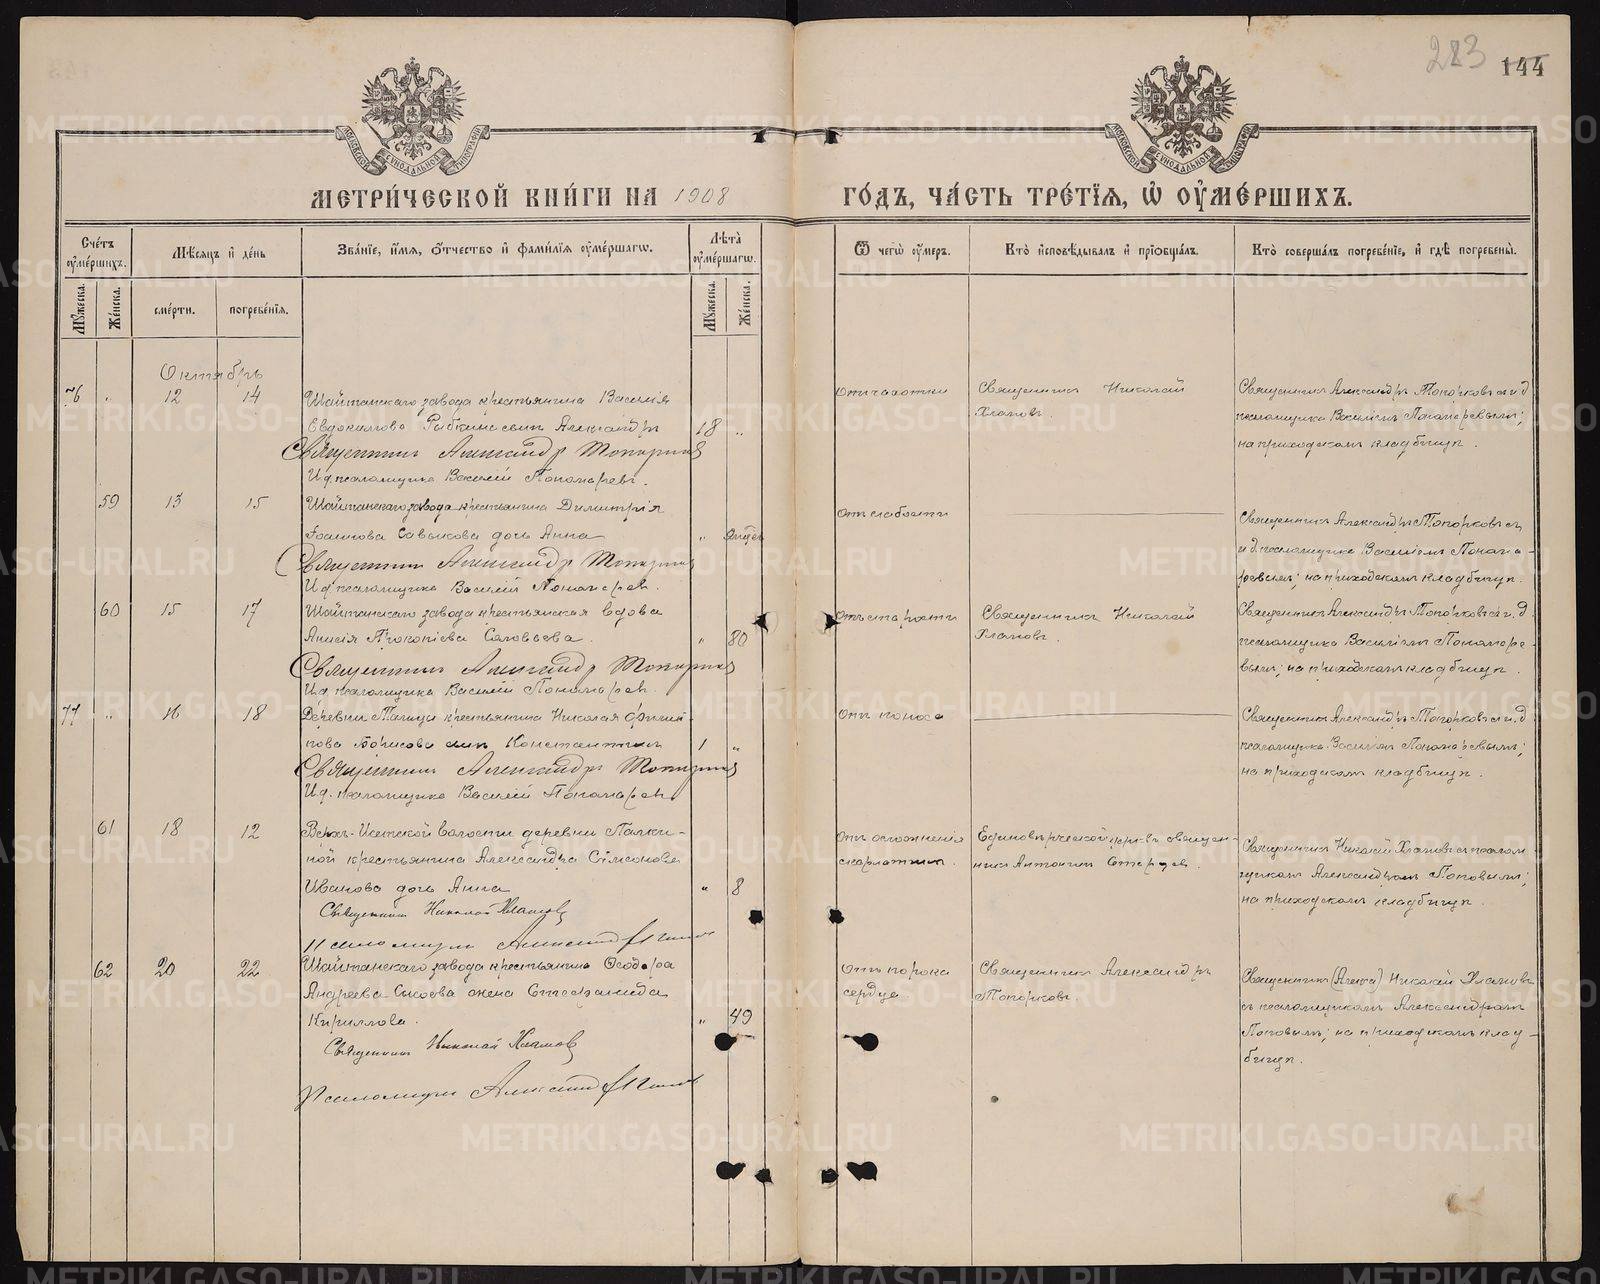 283 144
МОСКОВСКОЙ СУНОДАЛЬНОЙ ТИПОГРАФІИ
МОСКОВСКОЙ СУНОДАЛЬНОЙ ТИПОГРАФІИ
МЕТРИ́ЧЕСКОЙ КНИ́ГИ НА 1908
ГО́ДЪ, ЧА́СТЬ ТРЕ́ТІѦ, Ѡ҆ ОУ҆МЕ́РШИХЪ.
Сче́тъ оу҆ме́ршихъ.
Мѣ́сѧцъ и҆ де́нь
Зва́нїе, и҆́мѧ, ѻ҆́тчество и҆ фами́лїѧ оу҆ме́ршагѡ.
Лѣ́та̀ оу҆ме́ршагѡ.
Ѿ чегѡ̀ оу҆́меръ.
Кто̀ и҆сповѣ́дывалъ и҆ прїѡбща́лъ.
Кто̀ соверша́лъ погребе́нїе, и҆ гдѣ̀ погребены̀.
Мꙋ́жеска. Же́нска.
сме́рти. погребе́нїѧ.
Мꙋ́жеска. Же́нска.
Октябрь
76 „ 12 14
Шайтанскаго завода крестьянина Василія
Евдокимова Рыбкина сынъ Александръ 18 „
Священникъ Александр Топорков
И.д. псаломщика Василій Пономаревъ.
Отъ чахотки
Священникъ Николай
Хламовъ.
Священникъ Александръ Топорковъ съ и.д.
псаломщика Василіемъ Пономаревымъ;
на приходскомъ кладбищѣ.
59 13 15
Шайтанскаго завода крестьянина Димитрія
Іоаннова Савькова дочь Анна „
Священник Александр Топорков
И.д. псаломщика Василій Пономаревъ.
Отъ слабости
Священникъ Александръ Топорковъ съ
и.д. псаломщика Василіемъ Понома-
ревымъ; на приходскомъ кладбищѣ.
60 15 17
Шайтанскаго завода крестьянская вдова
Анисія Прокопіева Соловьева. „ 80
Священник Александр Топорков
И.д. псаломщика Василій Пономаревъ.
Отъ старости
Священникъ Николай
Хламовъ.
Священникъ Александръ Топорковъ съ и.д.
псаломщика Василіемъ Пономаре-
вымъ; на приходскомъ кладбищѣ.
77 „ 16 18
Деревни Талицы крестьянина Николая Филип-
пова Борисова сынъ Константинъ 1 „
Священник Александр Топорков
И.д. псаломщика Василій Пономаревъ.
Отъ поноса
Священникъ Александръ Топорковъ съ и.д.
псаломщика Василіемъ Пономаревымъ;
на приходскомъ кладбищѣ.
61 18 12
Верхъ-Исетской волости деревни Палки-
ной крестьянина Александра Симонова
Иванова дочь Анна „ 8
Священникъ Николай Хламовъ
Псаломщикъ Александр Попов
Отъ осложненія
скарлатины.
Единовѣрческой церкви священ-
никъ Антоній
Священникъ Николай Хламовъ съ псалом-
щикомъ Александромъ Поповымъ;
на приходскомъ кладбищѣ.
62 20 22
Шайтанскаго завода крестьянина Ѳеодора
Андреева Сысоева жена Стефанида
Кириллова. „ 49
Священникъ Николай Хламовъ
Псаломщикъ Александр Попов
Отъ порока
сердца
Священникъ Александръ
Топорковъ.
Священникъ Николай Хламовъ
съ псаломщикомъ Александромъ
Поповымъ; на приходскомъ клад-
бищѣ.
METRIKI.GASO-URAL.RU